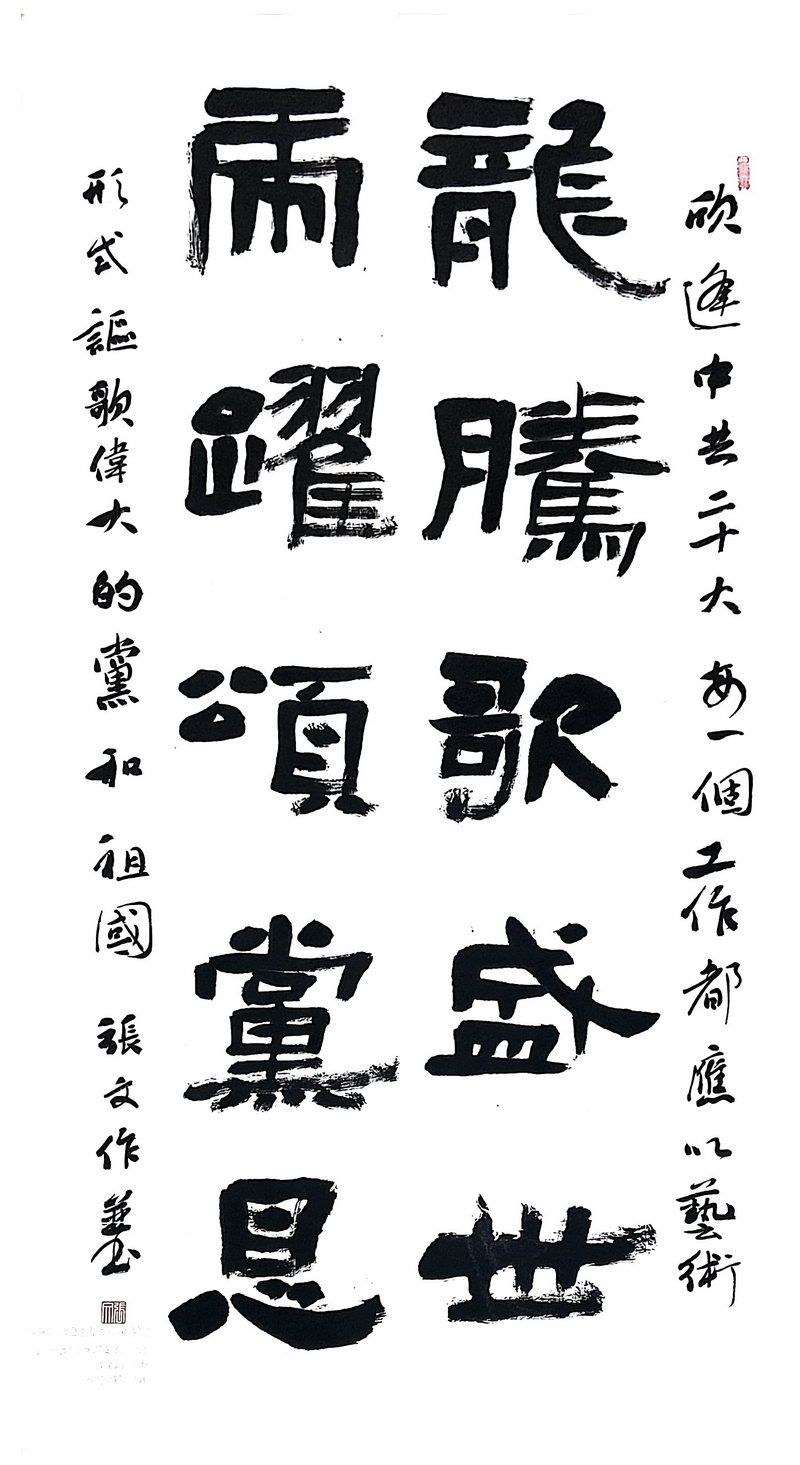 欣逢中共二十大每一個工作都應以藝術
龍騰歌盛世
虎躍頌黨恩
形式謳歌偉大的黨和祖國 張文作並書